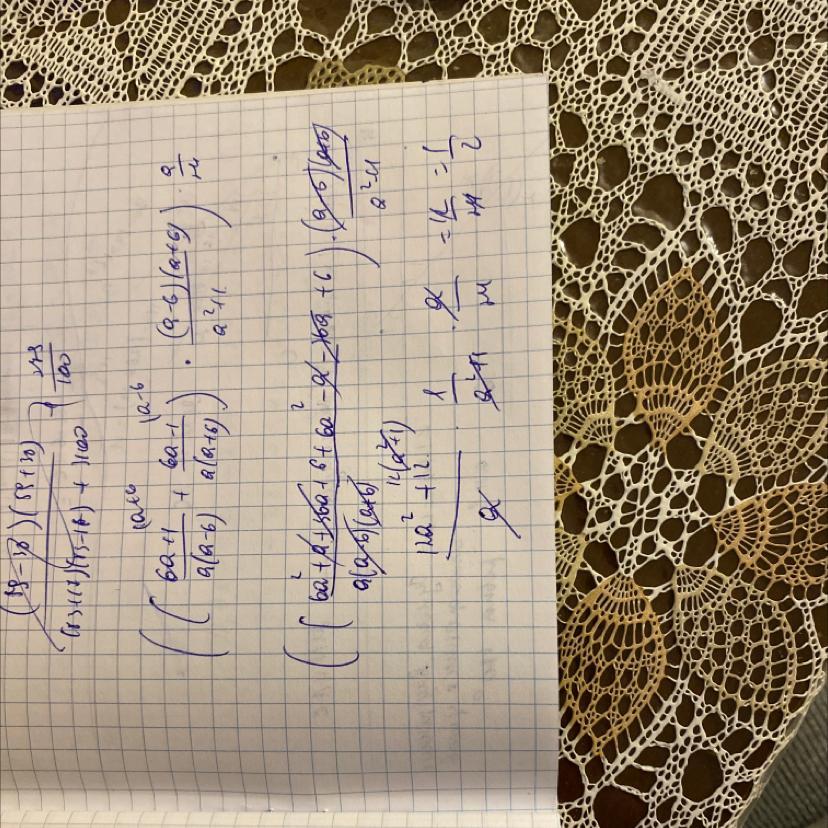 (59-36)(59+36)
(83+17)(83-17)+1100 } 243/100
((6a+1/a(a-6) + 6a-1/a(a+6)) · (a-6)(a+6)/a²+1) · a/24
((6a²+a+36a+6+6a²-a-36a+6/a(a-6)(a+6)) · (a-6)(a+6)/a²+1
12(a²+1)
12a²+12/a · 1/a²+1 · a/24 = 12/24 = 1/2